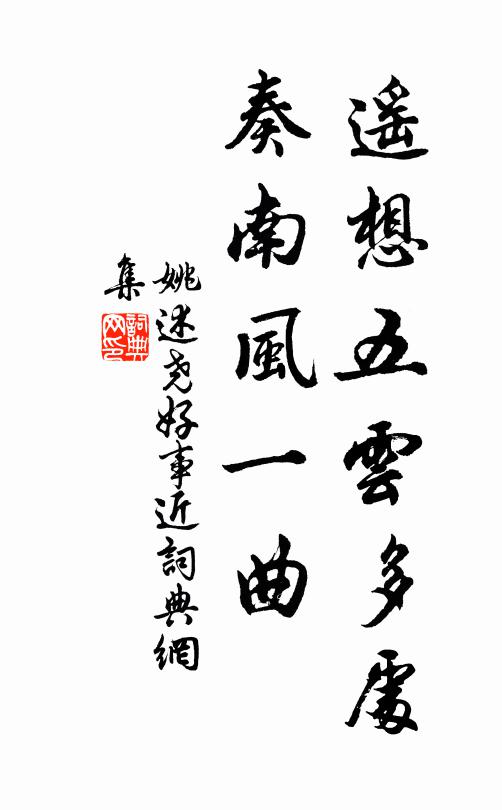 遥想五雲多處
奏南風一曲
姚述尧好事近詞典網
集
詞典網印